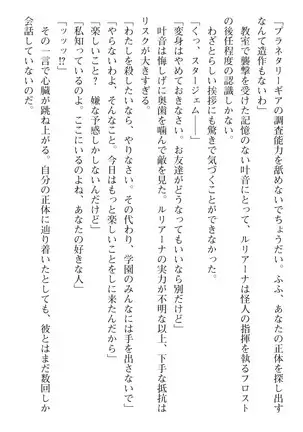 「プラネタリーギアの調査能力を舐めないでちょうだい。ふふ、あなたの正体を探し出す
なんて造作もないわ」
教室で襲撃を受けた記憶のない叶音にとって、ルリアーナは怪人の指揮を執るフロスト
の後任程度の認識しかない。
わざとらしい挨拶にも驚きで気づくことができなかった。
「くっ、スタージェム――」
「変身はやめておきなさい。お友達がどうなってもいいなら別だけど」
叶音は悔しげに奥歯を噛んで敵を見た。ルリアーナの実力が不明な以上、下手な抵抗は
リスクが大きすぎる。
「わたしを殺したいなら、やりなさい。その代わり、学園のみんなには手を出さないで」
「やらないわよ、そんなこと。今日はもっと楽しいことをしに来たんだから」
「楽しいこと? 嫌な予感しかしないんだけど」
「私知っているのよね。ここにいるのよね、あなたの好きな人」
「ッッッ!?」
その一言で心臓が跳ね上がる。自分の正体に辿り着いたとしても、彼とはまだ数回しか
会話していないのだ。